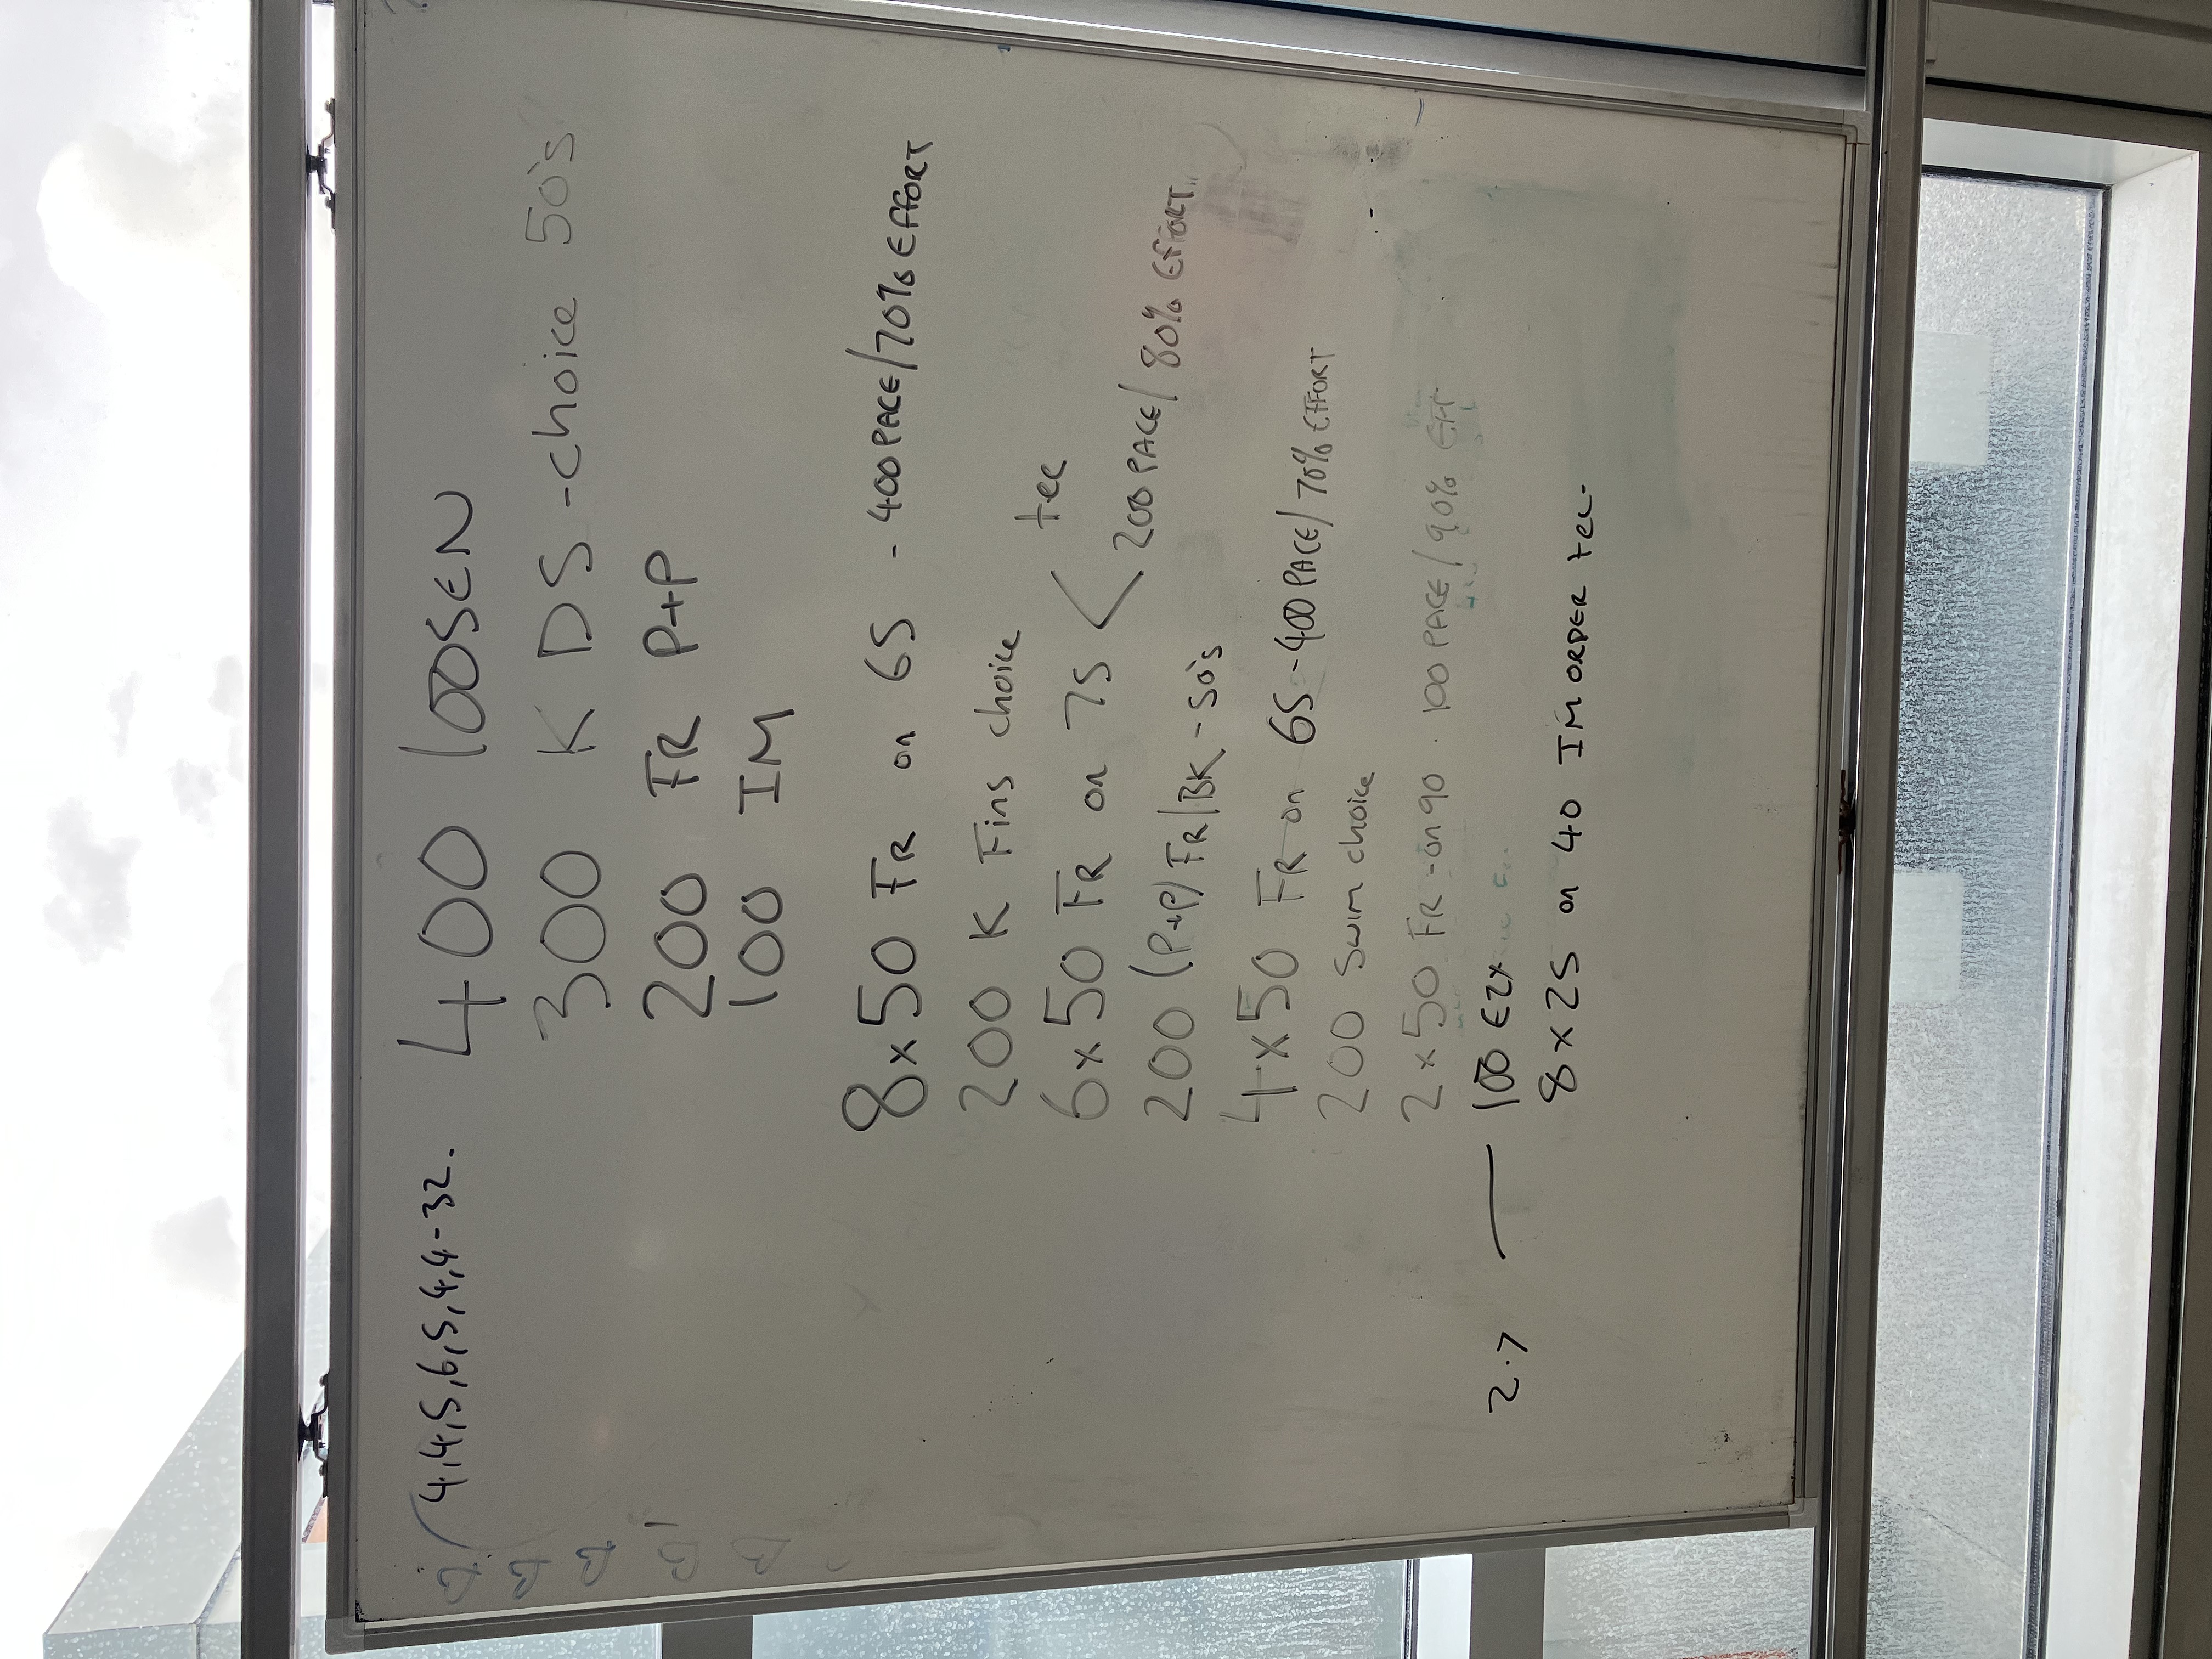 4,4,5,6,5,4,4-32.
400 loosEN
300 K DS -choice 50's
200 FR P+P
100 IM
8x50 FR on 65 - 400 PACE/70% EFFORT
200 K Fins choice
6x50 FR on 75 < tec
200 PACE/ 80% EFFORT
200 (P+P) FR/BK - 50's
4x50 FR on 65 - 400 PACE/ 70% EFFORT
200 Swim choice
2x50 FR -on 90 . 100 PACE/90% EFF
2.7 — 100 EZY
8x25 on 40 IM ORDER tec-